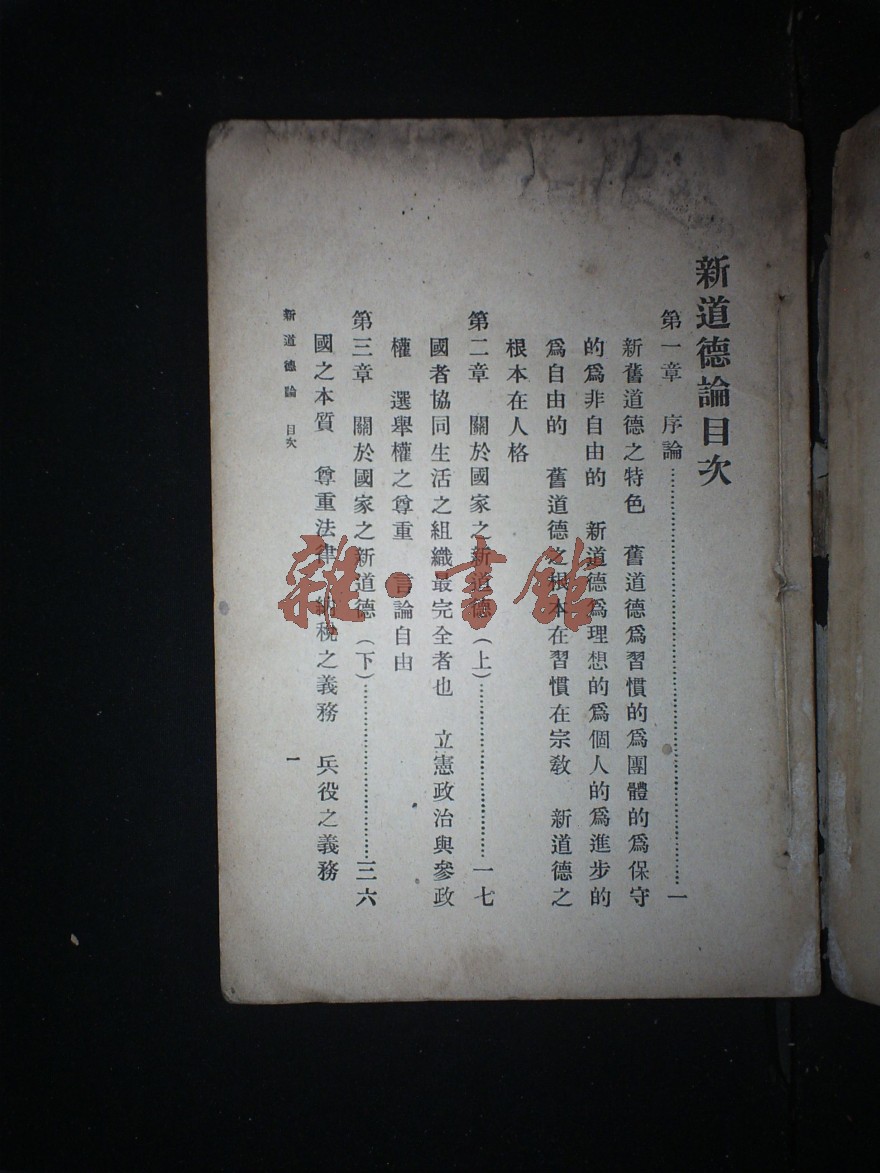 新道德論目次
第一章　序論……………………………一
新舊道德之特色　舊道德爲習慣的爲團體的爲保守
的爲非自由的　新道德爲理想的爲個人的爲進步的
爲自由的　舊道德之根本在習慣在宗教　新道德之
根本在人格
第二章　關於國家之新道德（上）……………………一七
國者協同生活之組織最完全者也　立憲政治與參政
權　選舉權之尊重　言論自由
第三章　關於國家之新道德（下）……………………三六
國之本質　尊重法律　納稅之義務　兵役之義務
新道德論　目次　一
雜·書館